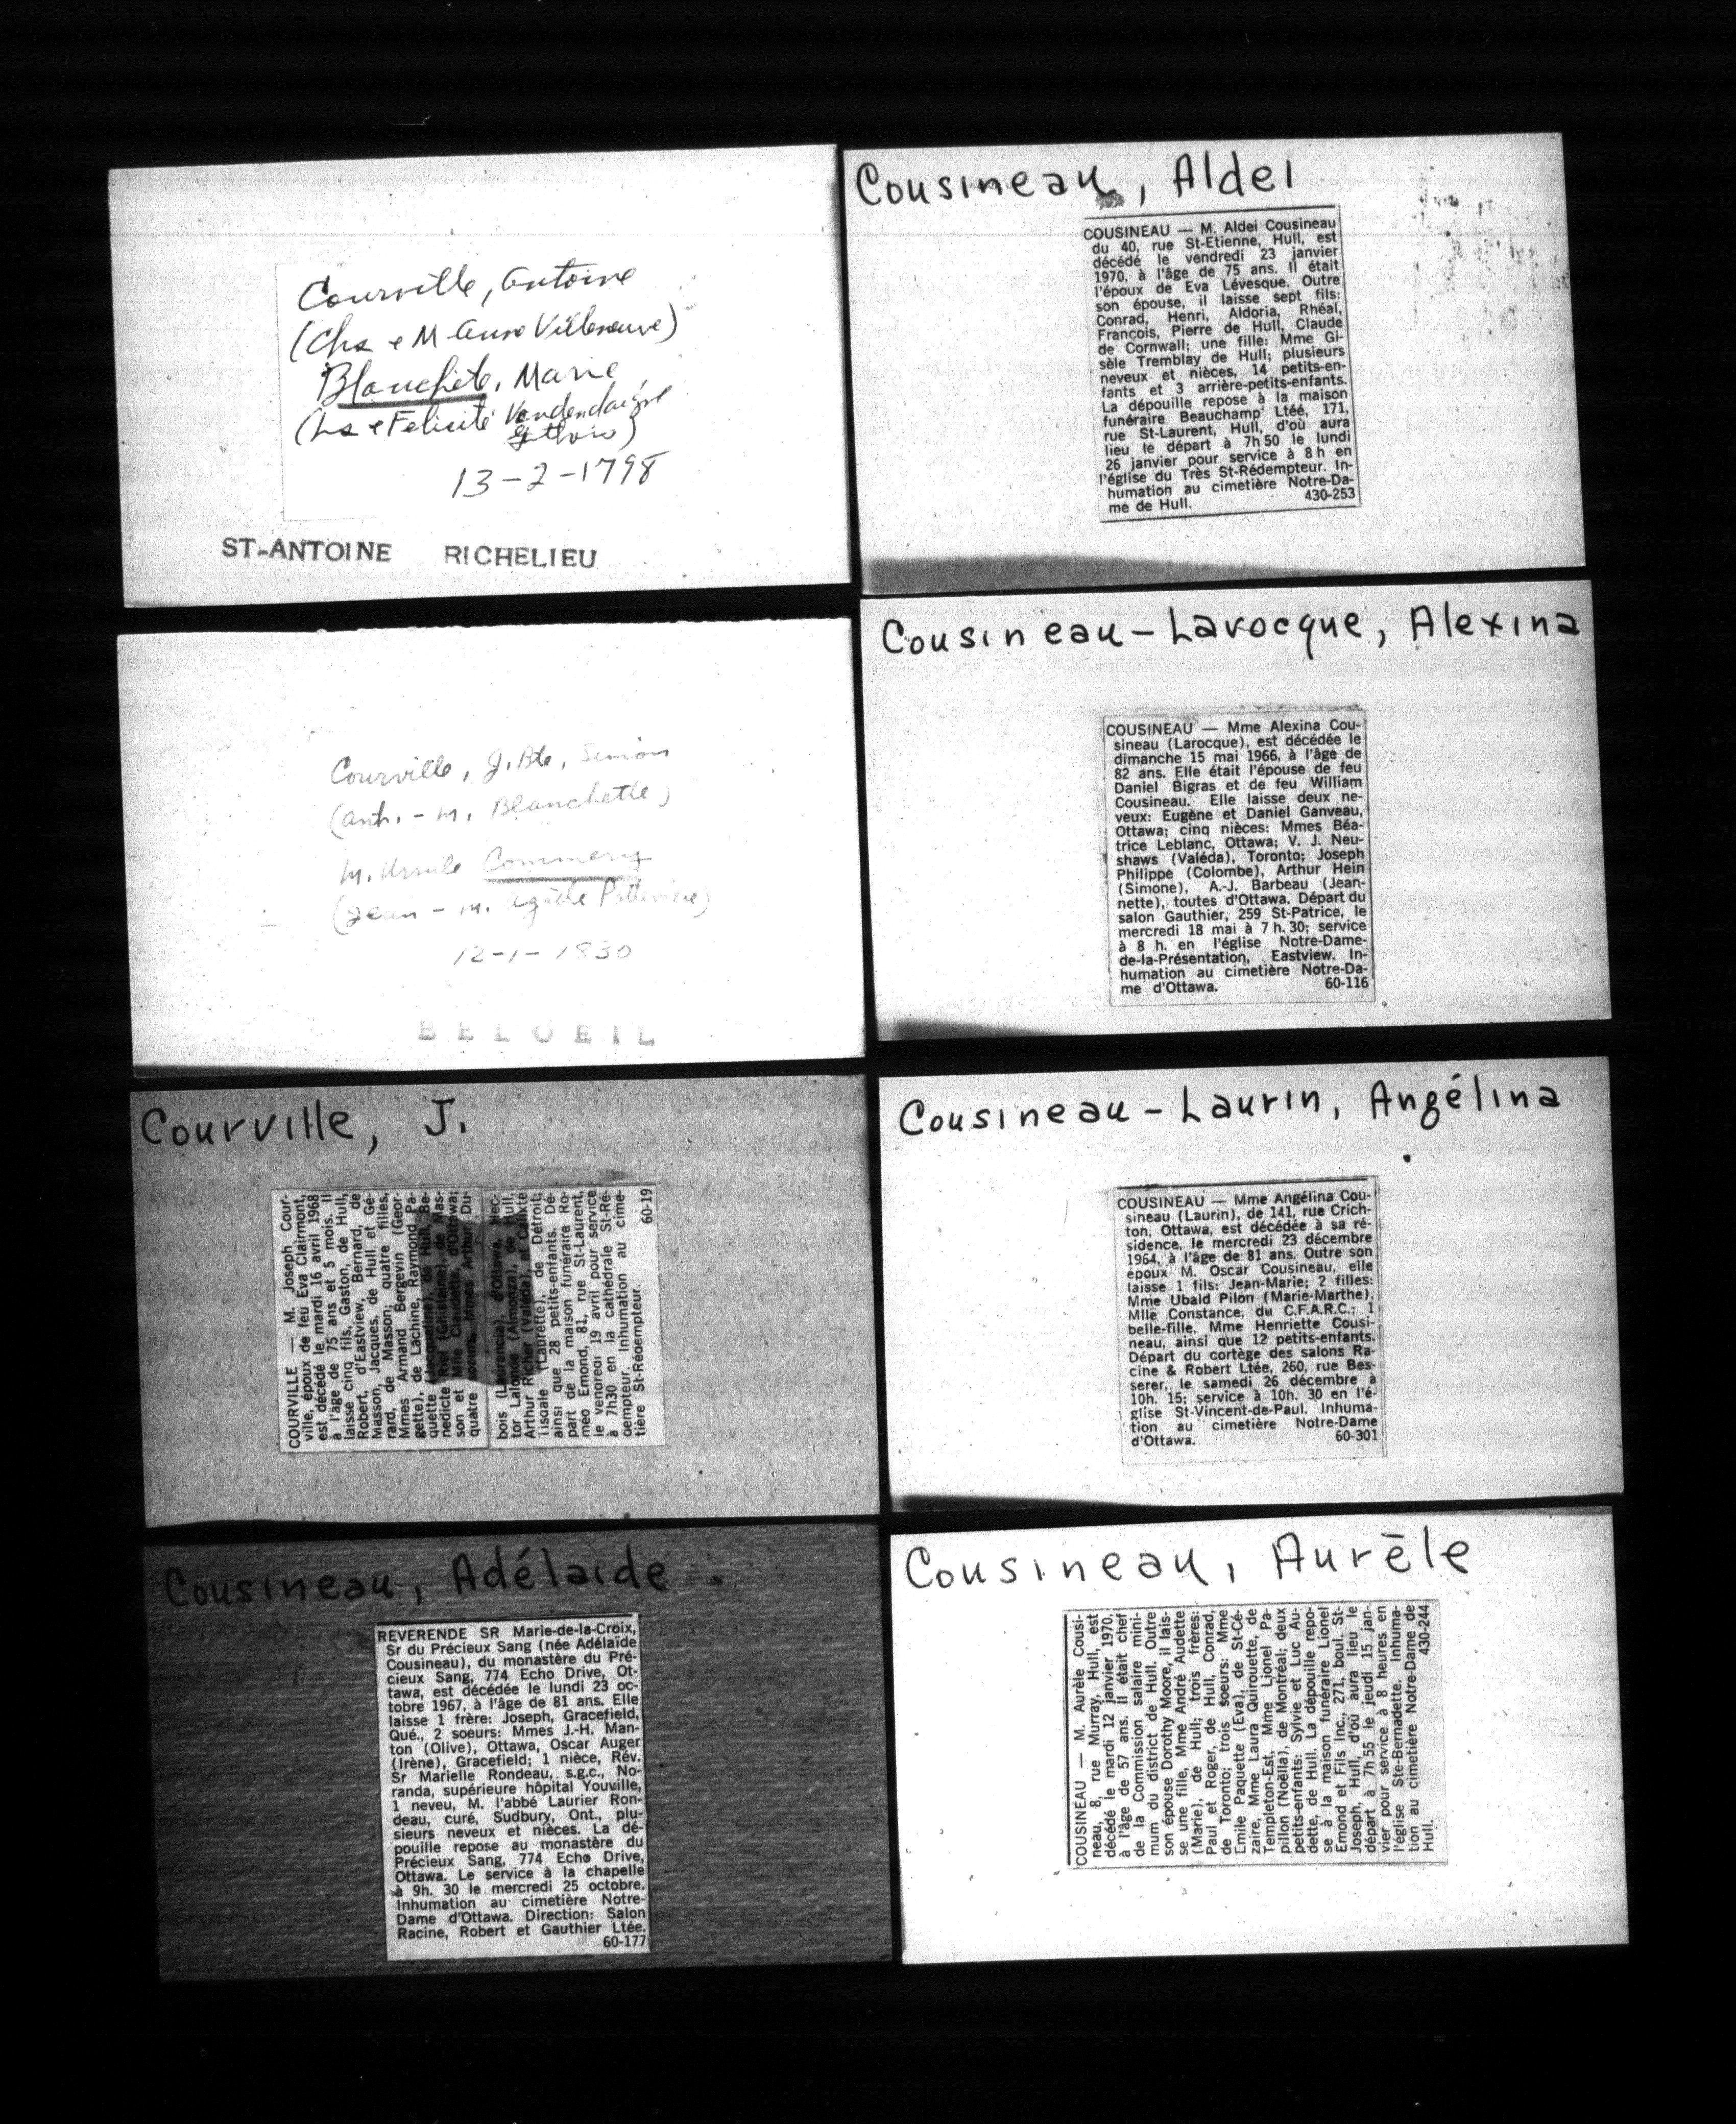 Courville, Antoine
(Chs e M-Anne Villeneuve)
Blanchete, Marie
(Ls e Felicité Vandendaigue
13-2-1798
ST-ANTOINE RICHELIEU
Courville, J. Bte, Simon
(Ant. - M. Blanchette)
M. Ursule
(Jean - M.
12-1-1830
BELOEIL
Courville, J.
COURVILLE — M. Joseph Cour-
ville, époux de feu Eva Clairmont,
est décédé le mardi 16 avril 1968
à l'âge de 75 ans et 5 mois. Il
laisse cinq fils, Gaston, de Hull,
Robert, d'Eastview, Bernard, de
Masson, Jacques, de Hull et Gé-
rard, de Masson; quatre filles,
Mmes Armand Bergevin (Geor-
gette), de Lachine, Raymond Pa-
quette (Jacqueline), de Hull, Be-
nedicte Riel (Ghislaine), de Mas-
son et Mlle Claudette, d'Ottawa;
quatre soeurs, Mmes Arthur Du-
bois (Laurencia), d'Ottawa, Hec-
tor Lalonde (Almonza), de Hull,
Arthur Richer (Valéda), et Calixte
(Laurette), de Détroit;
ainsi que 28 petits-enfants. Dé-
part de la maison funéraire Ro-
méo Emond, 81, rue St-Laurent,
le vendredi 19 avril pour service
à 7h30 en la cathédrale St-Ré-
dempteur. Inhumation au cime-
tière St-Rédempteur. 60-19
Cousineau, Adélaide
REVERENDE SR Marie-de-la-Croix,
Sr du Précieux Sang (née Adélaïde
Cousineau), du monastère du Pré-
cieux Sang, 774 Echo Drive, Ot-
tawa, est décédée le lundi 23 oc-
tobre 1967, à l'âge de 81 ans. Elle
laisse 1 frère: Joseph, Gracefield,
Qué., 2 soeurs: Mmes J.-H. Man-
ton (Olive), Ottawa, Oscar Auger
(Irène), Gracefield; 1 nièce, Rév.
Sr Marielle Rondeau, s.g.c., No-
randa, supérieure hôpital Youville,
1 neveu, M. l'abbé Laurier Ron-
deau, curé, Sudbury, Ont., plu-
sieurs neveux et nièces. La dé-
pouille repose au monastère du
Précieux Sang, 774 Echo Drive,
Ottawa. Le service à la chapelle
à 9h. 30 le mercredi 25 octobre.
Inhumation au cimetière Notre-
Dame d'Ottawa. Direction: Salon
Racine, Robert et Gauthier Ltée.
60-177
Cousineau, Aldei
COUSINEAU — M. Aldei Cousineau
du 40, rue St-Etienne, Hull, est
décédé le vendredi 23 janvier
1970, à l'âge de 75 ans. Il était
l'époux de Eva Lévesque. Outre
son épouse, il laisse sept fils:
Conrad, Henri, Aldoria, Rhéal,
François, Pierre de Hull, Claude
de Cornwall; une fille: Mme Gi-
sèle Tremblay de Hull; plusieurs
neveux et nièces, 14 petits-en-
fants et 3 arrière-petits-enfants.
La dépouille repose à la maison
funéraire Beauchamp Ltéé, 171,
rue St-Laurent, Hull, d'où aura
lieu le départ à 7h 50 le lundi
26 janvier pour service à 8 h en
l'église du Très St-Rédempteur. In-
humation au cimetière Notre-Da-
me de Hull. 430-253
Cousineau-Larocque, Alexina
COUSINEAU — Mme Alexina Cou-
sineau (Larocque), est décédée le
dimanche 15 mai 1966, à l'âge de
82 ans. Elle était l'épouse de feu
Daniel Bigras et de feu William
Cousineau. Elle laisse deux ne-
veux: Eugène et Daniel Ganveau,
Ottawa; cinq nièces: Mmes Béa-
trice Leblanc, Ottawa; V. J. Neu-
shaws (Valéda), Toronto; Joseph
Philippe (Colombe), Arthur Hein
(Simone), A.-J. Barbeau (Jean-
nette), toutes d'Ottawa. Départ du
salon Gauthier, 259 St-Patrice, le
mercredi 18 mai à 7 h. 30; service
à 8 h. en l'église Notre-Dame-
de-la-Présentation, Eastview. In-
humation au cimetière Notre-Da-
me d'Ottawa. 60-116
Cousineau-Laurin, Angélina
COUSINEAU — Mme Angélina Cou-
sineau (Laurin), de 141, rue Crich-
ton, Ottawa, est décédée à sa ré-
sidence, le mercredi 23 décembre
1964, à l'âge de 81 ans. Outre son
époux M. Oscar Cousineau, elle
laisse 1 fils: Jean-Marie; 2 filles:
Mme Ubald Pilon (Marie-Marthe),
Mlle Constance, du C.F.A.R.C.; 1
belle-fille, Mme Henriette Cousi-
neau, ainsi que 12 petits-enfants.
Départ du cortège des salons Ra-
cine & Robert Ltée, 260, rue Bes-
serer, le samedi 26 décembre à
10h. 15; service à 10h. 30 en l'é-
glise St-Vincent-de-Paul. Inhuma-
tion au cimetière Notre-Dame
d'Ottawa. 60-301
Cousineau, Aurèle
COUSINEAU — M. Aurèle Cousi-
neau, 8, rue Murray, Hull, est
décédé le mardi 12 janvier 1970,
à l'âge de 57 ans. Il était chef
de la Commission salaire mini-
mum du district de Hull. Outre
son épouse Dorothy Moore, il lais-
se une fille, Mme André Audette
(Marie), de Hull; trois frères:
Paul et Roger, de Hull, Conrad,
de Toronto; trois soeurs: Mme
Emile Paquette (Eva), de St-Cé-
zaire, Mme Laura Quirouette, de
Templeton-Est, Mme Lionel Pa-
pillon (Noëlla), de Montréal; deux
petits-enfants: Sylvie et Luc Au-
dette, de Hull. La dépouille repo-
se à la maison funéraire Lionel
Emond et Fils Inc., 271, boul. St-
Joseph, Hull, d'où aura lieu le
départ à 7h 55 le jeudi 15 jan-
vier pour service à 8 heures en
l'église Ste-Bernadette. Inhuma-
tion au cimetière Notre-Dame de
Hull. 430-244